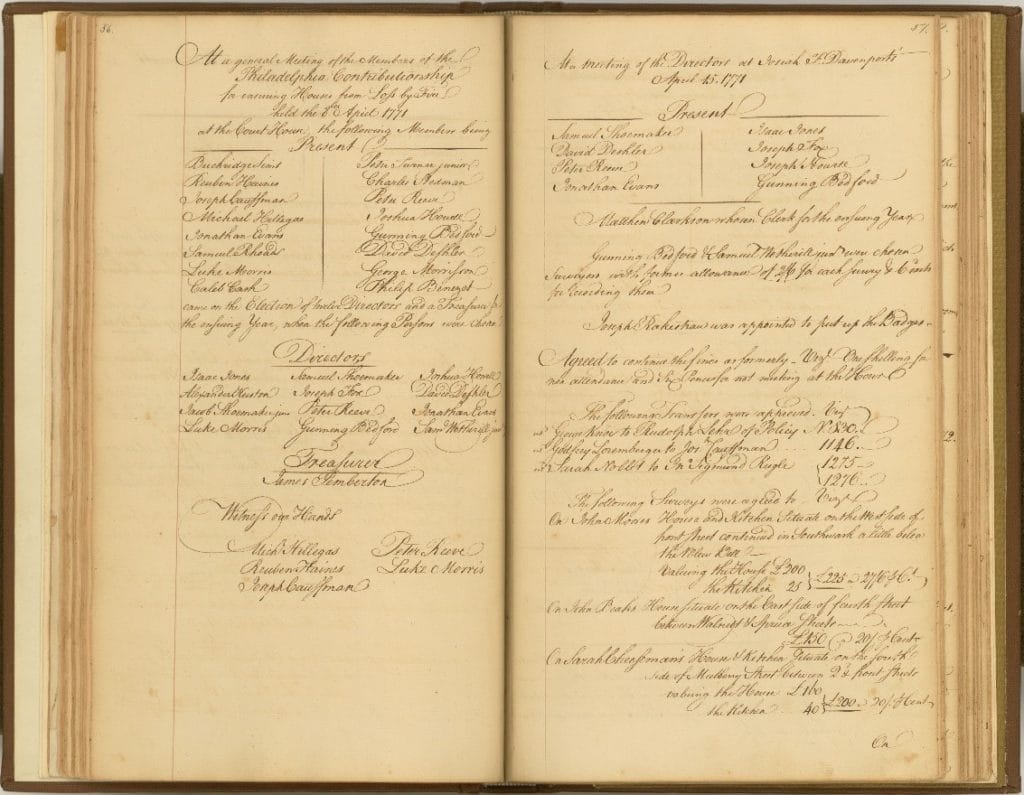 56.
At a general Meeting of the Members of the
Philadelphia Contributionship
for insuring Houses from Loss by Fire
held the 8th April 1771
at the Court House, the following Members being
Present
Buckridge Sims Peter Turner junior
Reuben Haines Charles Stedman
Joseph Cauffman Peter Reeve
Michael Hillegas Joshua Howell
Jonathan Evans Gunning Bedford
Samuel Rhoads David Deshler
Luke Morris George Morrison
Caleb Cash Philip Benezet
came on the Election of twelve Directors and a Treasurer for
the ensuing Year, when the following Persons were chosen
Directors
Isaac Jones Samuel Shoemaker Joshua Howell
Alexander Huston Joseph Fox David Deshler
Jacob Shoemaker jun Peter Reeve Jonathan Evans
Luke Morris Gunning Bedford Saml Wetherill jun
Treasurer
James Pemberton
Witness our Hands
Michl Hillegas Peter Reeve
Reuben Haines Luke Morris
Joseph Cauffman
57.
At a meeting of the Directors at Josiah F. Davenport's
April 15. 1771
Present
Samuel Shoemaker Isaac Jones
David Deshler Joseph Fox
Peter Reeve Joseph Morris
Jonathan Evans Gunning Bedford
Matthew Clarkson chosen Clerk for the ensuing Year
Gunning Bedford & Samuel Wetherill junr were chosen
Surveyors with former allowance of 2/6 for each survey &
for recording them
Joseph Rakestraw was appointed to put up the Badges
Agreed to continue the fines as formerly - Vizt One shilling for
non attendance and Six Pence for not meeting at the Hour
The following Transfers were approved. Vizt
to Rudolph of Policy No 830
Godfrey to Jos. Cauffman 1146
Sarah to Jn Sigmund 1275
1276
The following Surveys were agreed to Vizt
On John House and Kitchen Situate on the West side of
front Street continued in Southwark a little below
the Blew Bell
valuing the House £200
the Kitchen 25 £225 @ 27/6 ₱ Ct
On John House situate on the East side of fourth Street
between Walnut & Spruce Streets
£150 @ 20/ ₱ Cent
On Sarah Cheesman's House & Kitchen Situate on the South
side of Mulberry Street between 2d & front Streets
valuing the House £160
the Kitchen 40 £200 20/ ₱ Cent
On